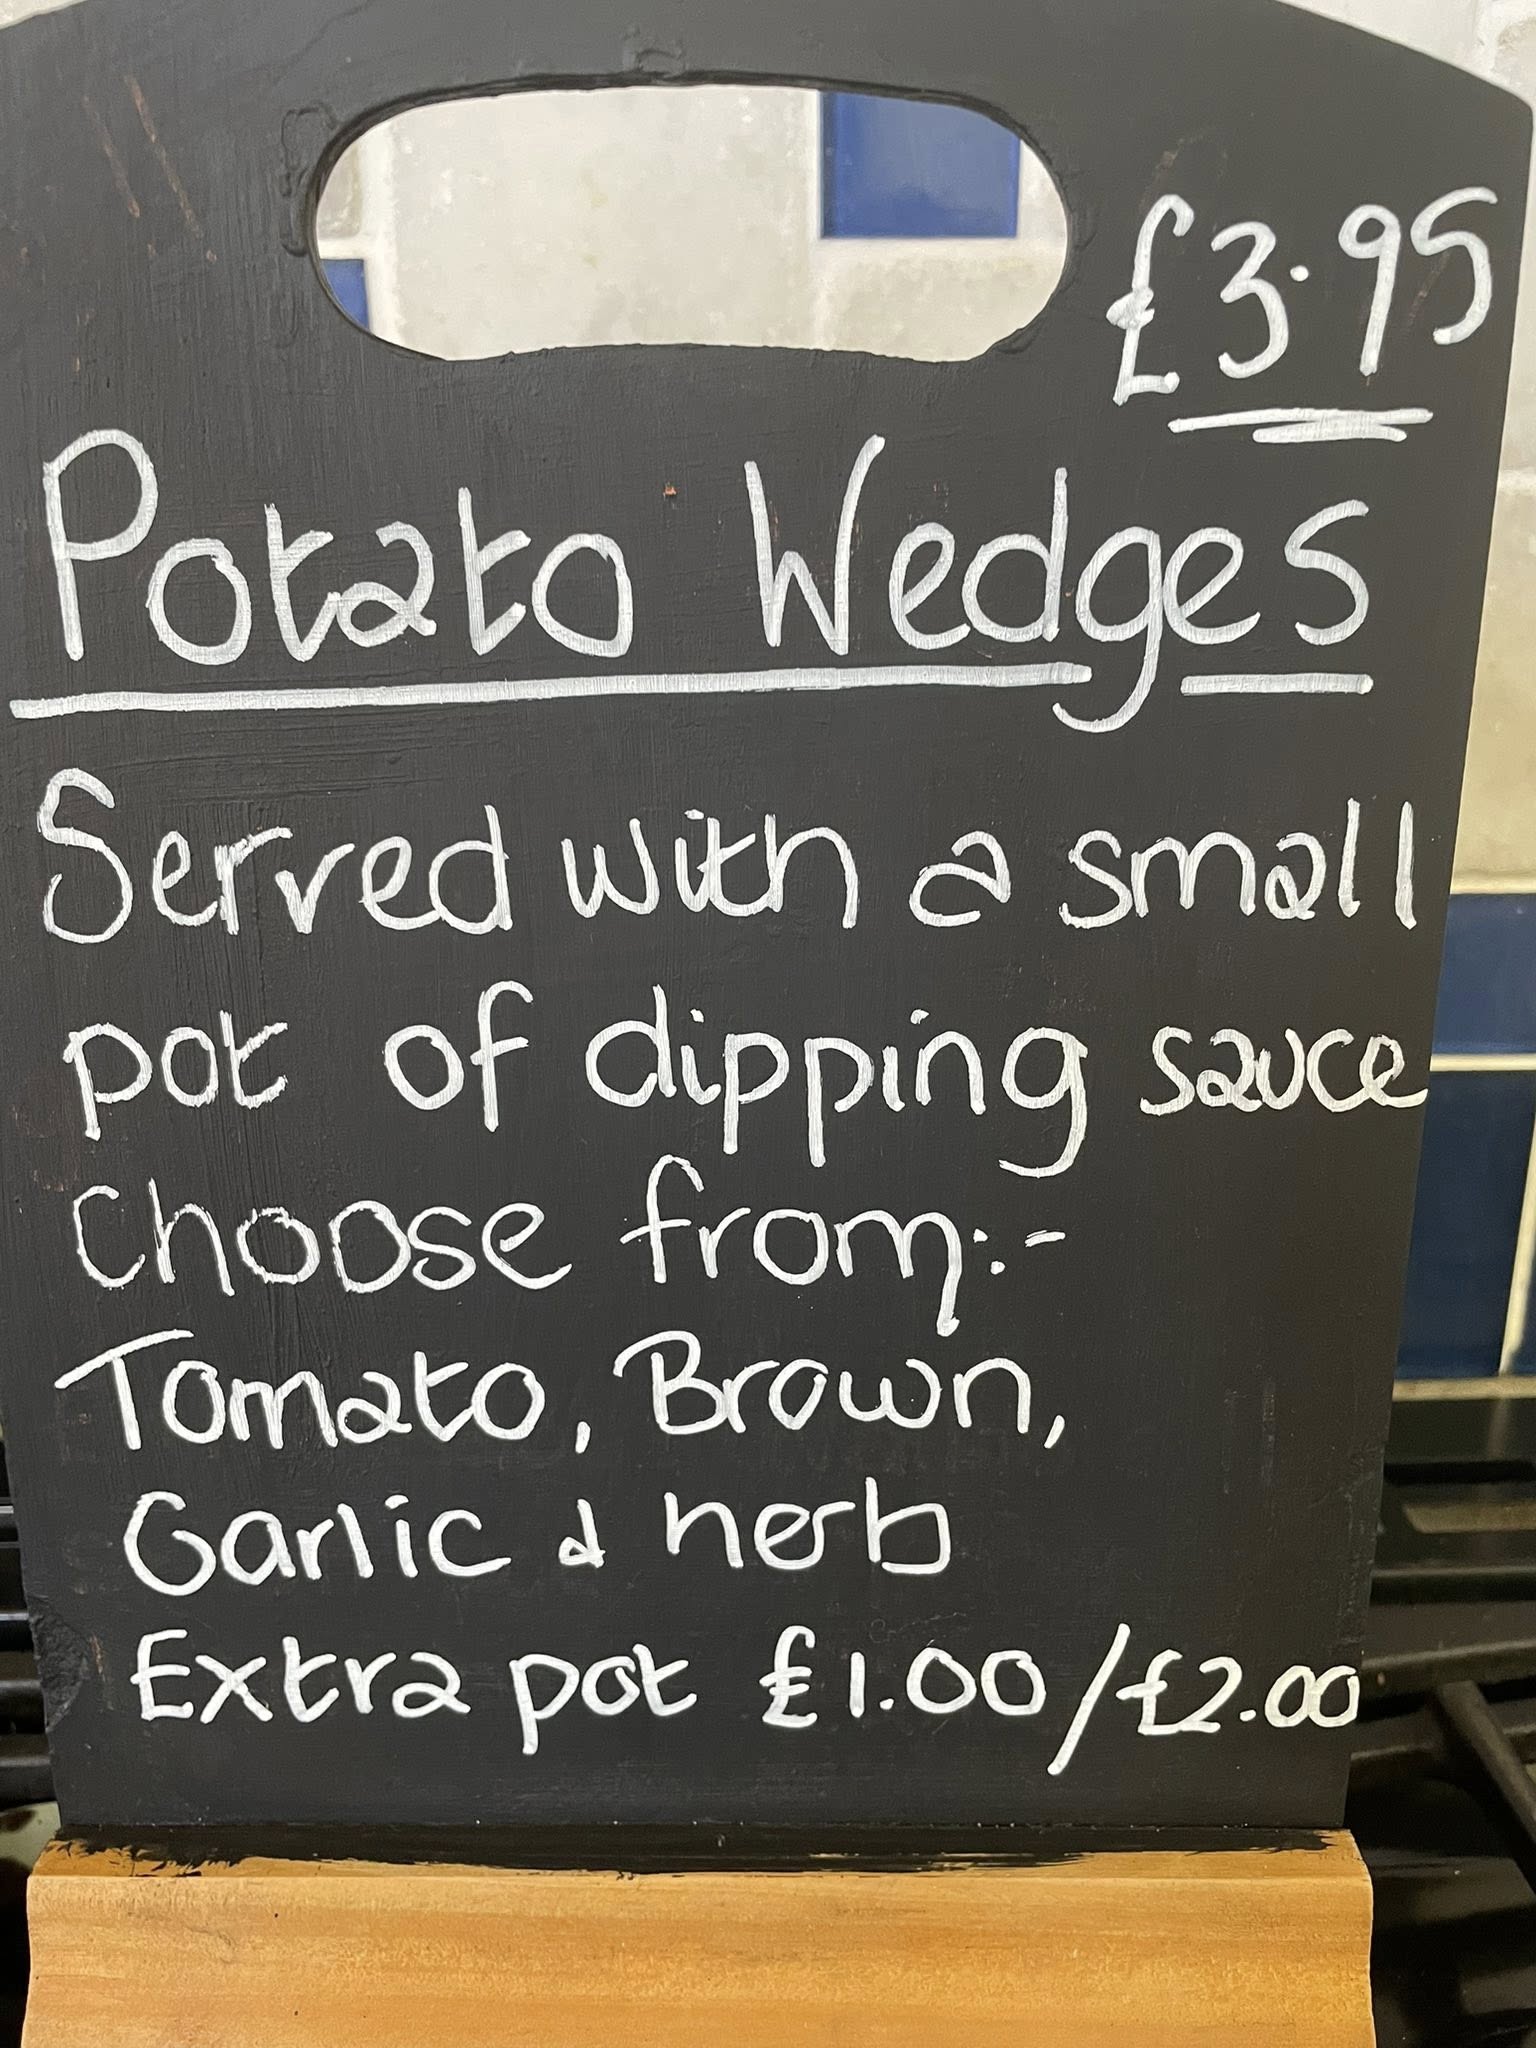 £3.95
Potato Wedges
Served with a small
pot of dipping sauce
Choose from:-
Tomato, Brown,
Garlic & herb
Extra pot £1.00/£2.00